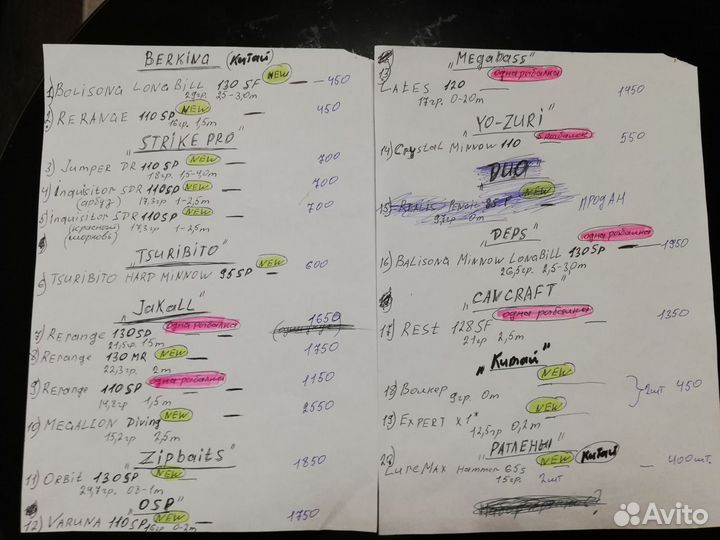 BERKING (Китай)
NEW
1) BOLISONG LONGBILL 130 SF — 450
29гр. 2,5-3,0m
NEW
2) RERANGE 110 SP — 450
16гр. 1,5m
"STRIKE PRO"
NEW
3) Jumper DR 110 SP — 700
18гр. 1,5-4,0m
4) Inquisitor SDR 110SP NEW — 700
(арбуз) 17,3гр 1-2,5m
5) Inquisitor SDR 110SP NEW — 700
(красный морковь) 17,3гр 1-2,5m
"TSURIBITO"
NEW
6) TSURIBITO HARD MINNOW 95SP — 600
"JaKall"
7) Rerange 130SP одна рыбалка — 1650
21,5гр. 15m
8) Rerange 130 MR NEW — 1750
22,3гр. 2m
9) Rerange 110 SP одна рыбалка — 1150
14,8гр 1,5m
10) MEGALION Diving NEW — 2550
15,2гр 2,5m
"Zipbaits"
11) ORBIT 130SP NEW — 1850
24,7гр. 0,8-1m
"OSP"
12) VARUNA 110SP NEW — 1750
15гр 0-2m
"Megabass"
13) одна рыбалка
LATES 120 — 1450
17гр. 0-20m
"YO-ZURI"
14) Crystal Minnow 110 5 рыбалок — 550
"DUO"
NEW
15) REALIS Pencil 85 F — ПРОДАН
9,7гр 0m
"DEPS"
одна рыбалка
16) BALISONG MINNOW LONGBILL 130SP — 1950
26,5гр. 2,5-3,0m
"GANCRAFT"
одна рыбалка
17) REST 128SF — 1350
21гр 2,5m
"Китай"
NEW
18) Волкер — } 2шт 450
9гр. 0m
NEW
19) EXPERT X1* —
12,5гр 0,2m
"РАТЛЕНЫ"
20) NEW Китай
LureMax Hammer 65s — 400шт.
15гр. 2шт